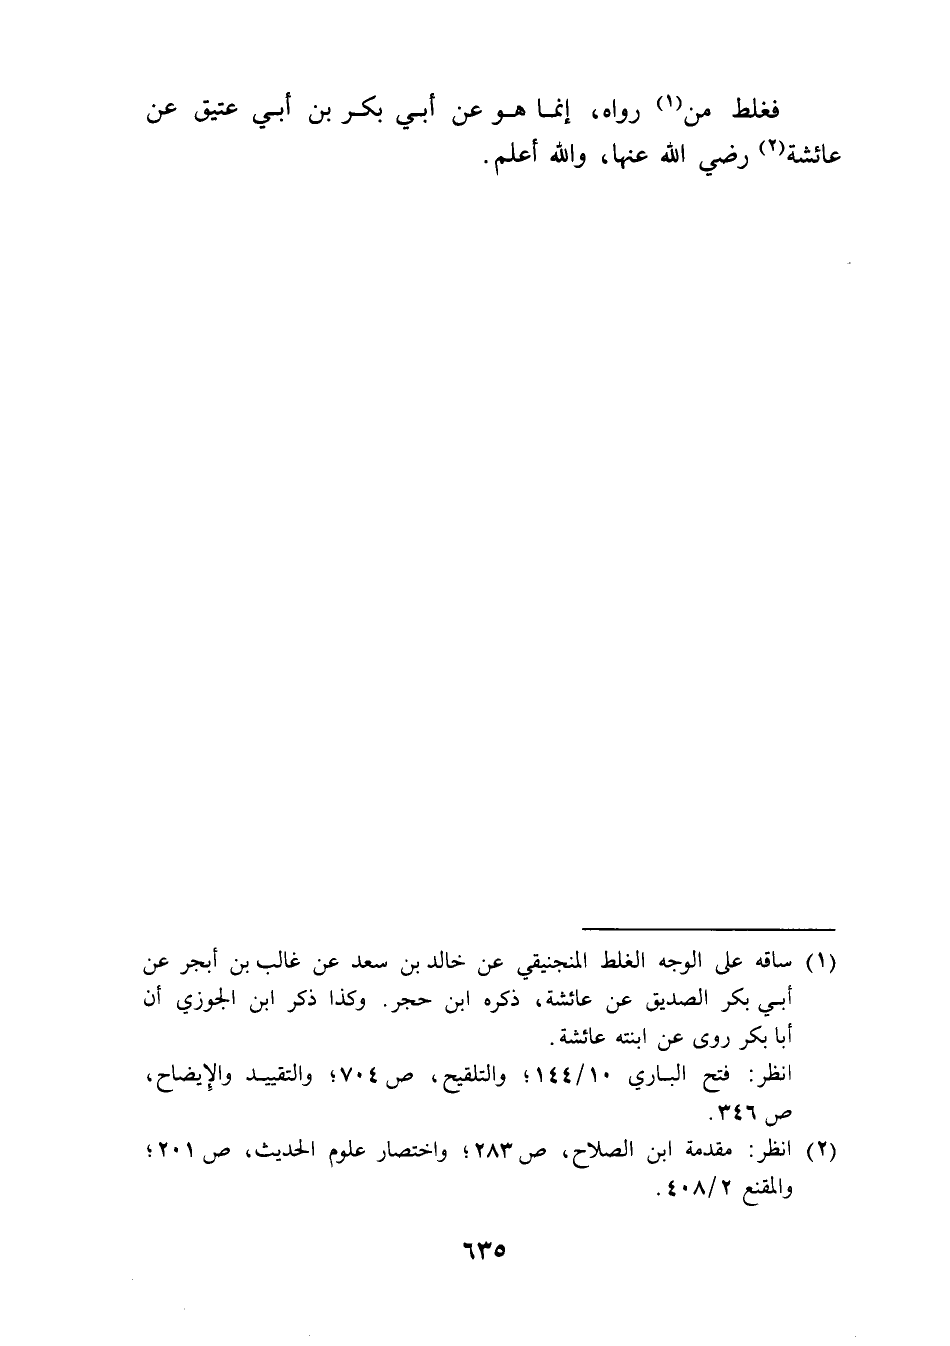 فغلط من(١) رواه، إنما هو عن أبي بكر بن أبي عتيق عن
عائشة(٢) رضي الله عنها، والله أعلم.
(١) ساقه على الوجه الغلط المنجنيقي عن خالد بن سعد عن غالب بن أبجر عن
أبي بكر الصديق عن عائشة، ذكره ابن حجر. وكذا ذكر ابن الجوزي أن
أبا بكر روى عن ابنته عائشة.
انظر: فتح الباري ١٤٤/١٠؛ والتلقيح، ص ٧٠٤؛ والتقييد والإيضاح،
ص ٣٤٦.
(٢) انظر: مقدمة ابن الصلاح، ص ٢٨٣؛ واختصار علوم الحديث، ص ٢٠١؛
والمقنع ٤٠٨/٢.
٦٣٥